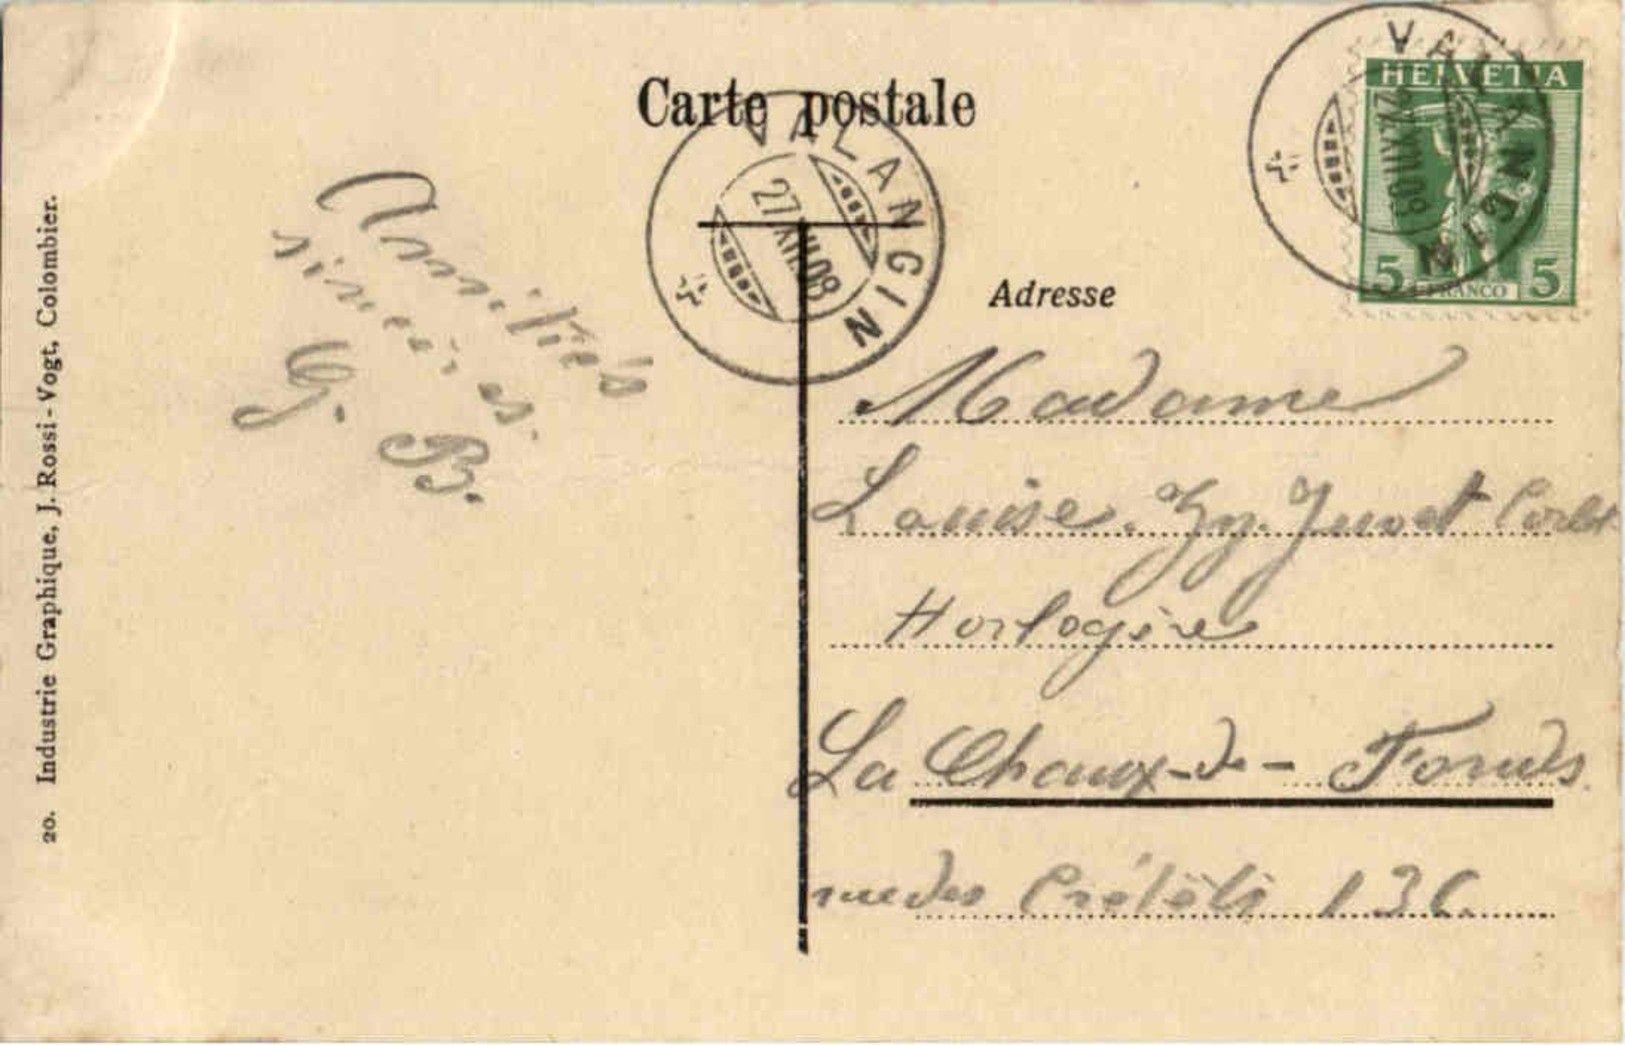 Carte postale
VALANGIN
27.XII.08
VALANGIN
27.XII.08
HELVETIA
5 FRANCO 5
Amitiés
sincères.
G. B.
Adresse
Madame
Louise Juvet
Horlogère
La Chaux-de-Fonds.
rue des Crêtêts
20. Industrie Graphique, J. Rossi-Vogt, Colombier.